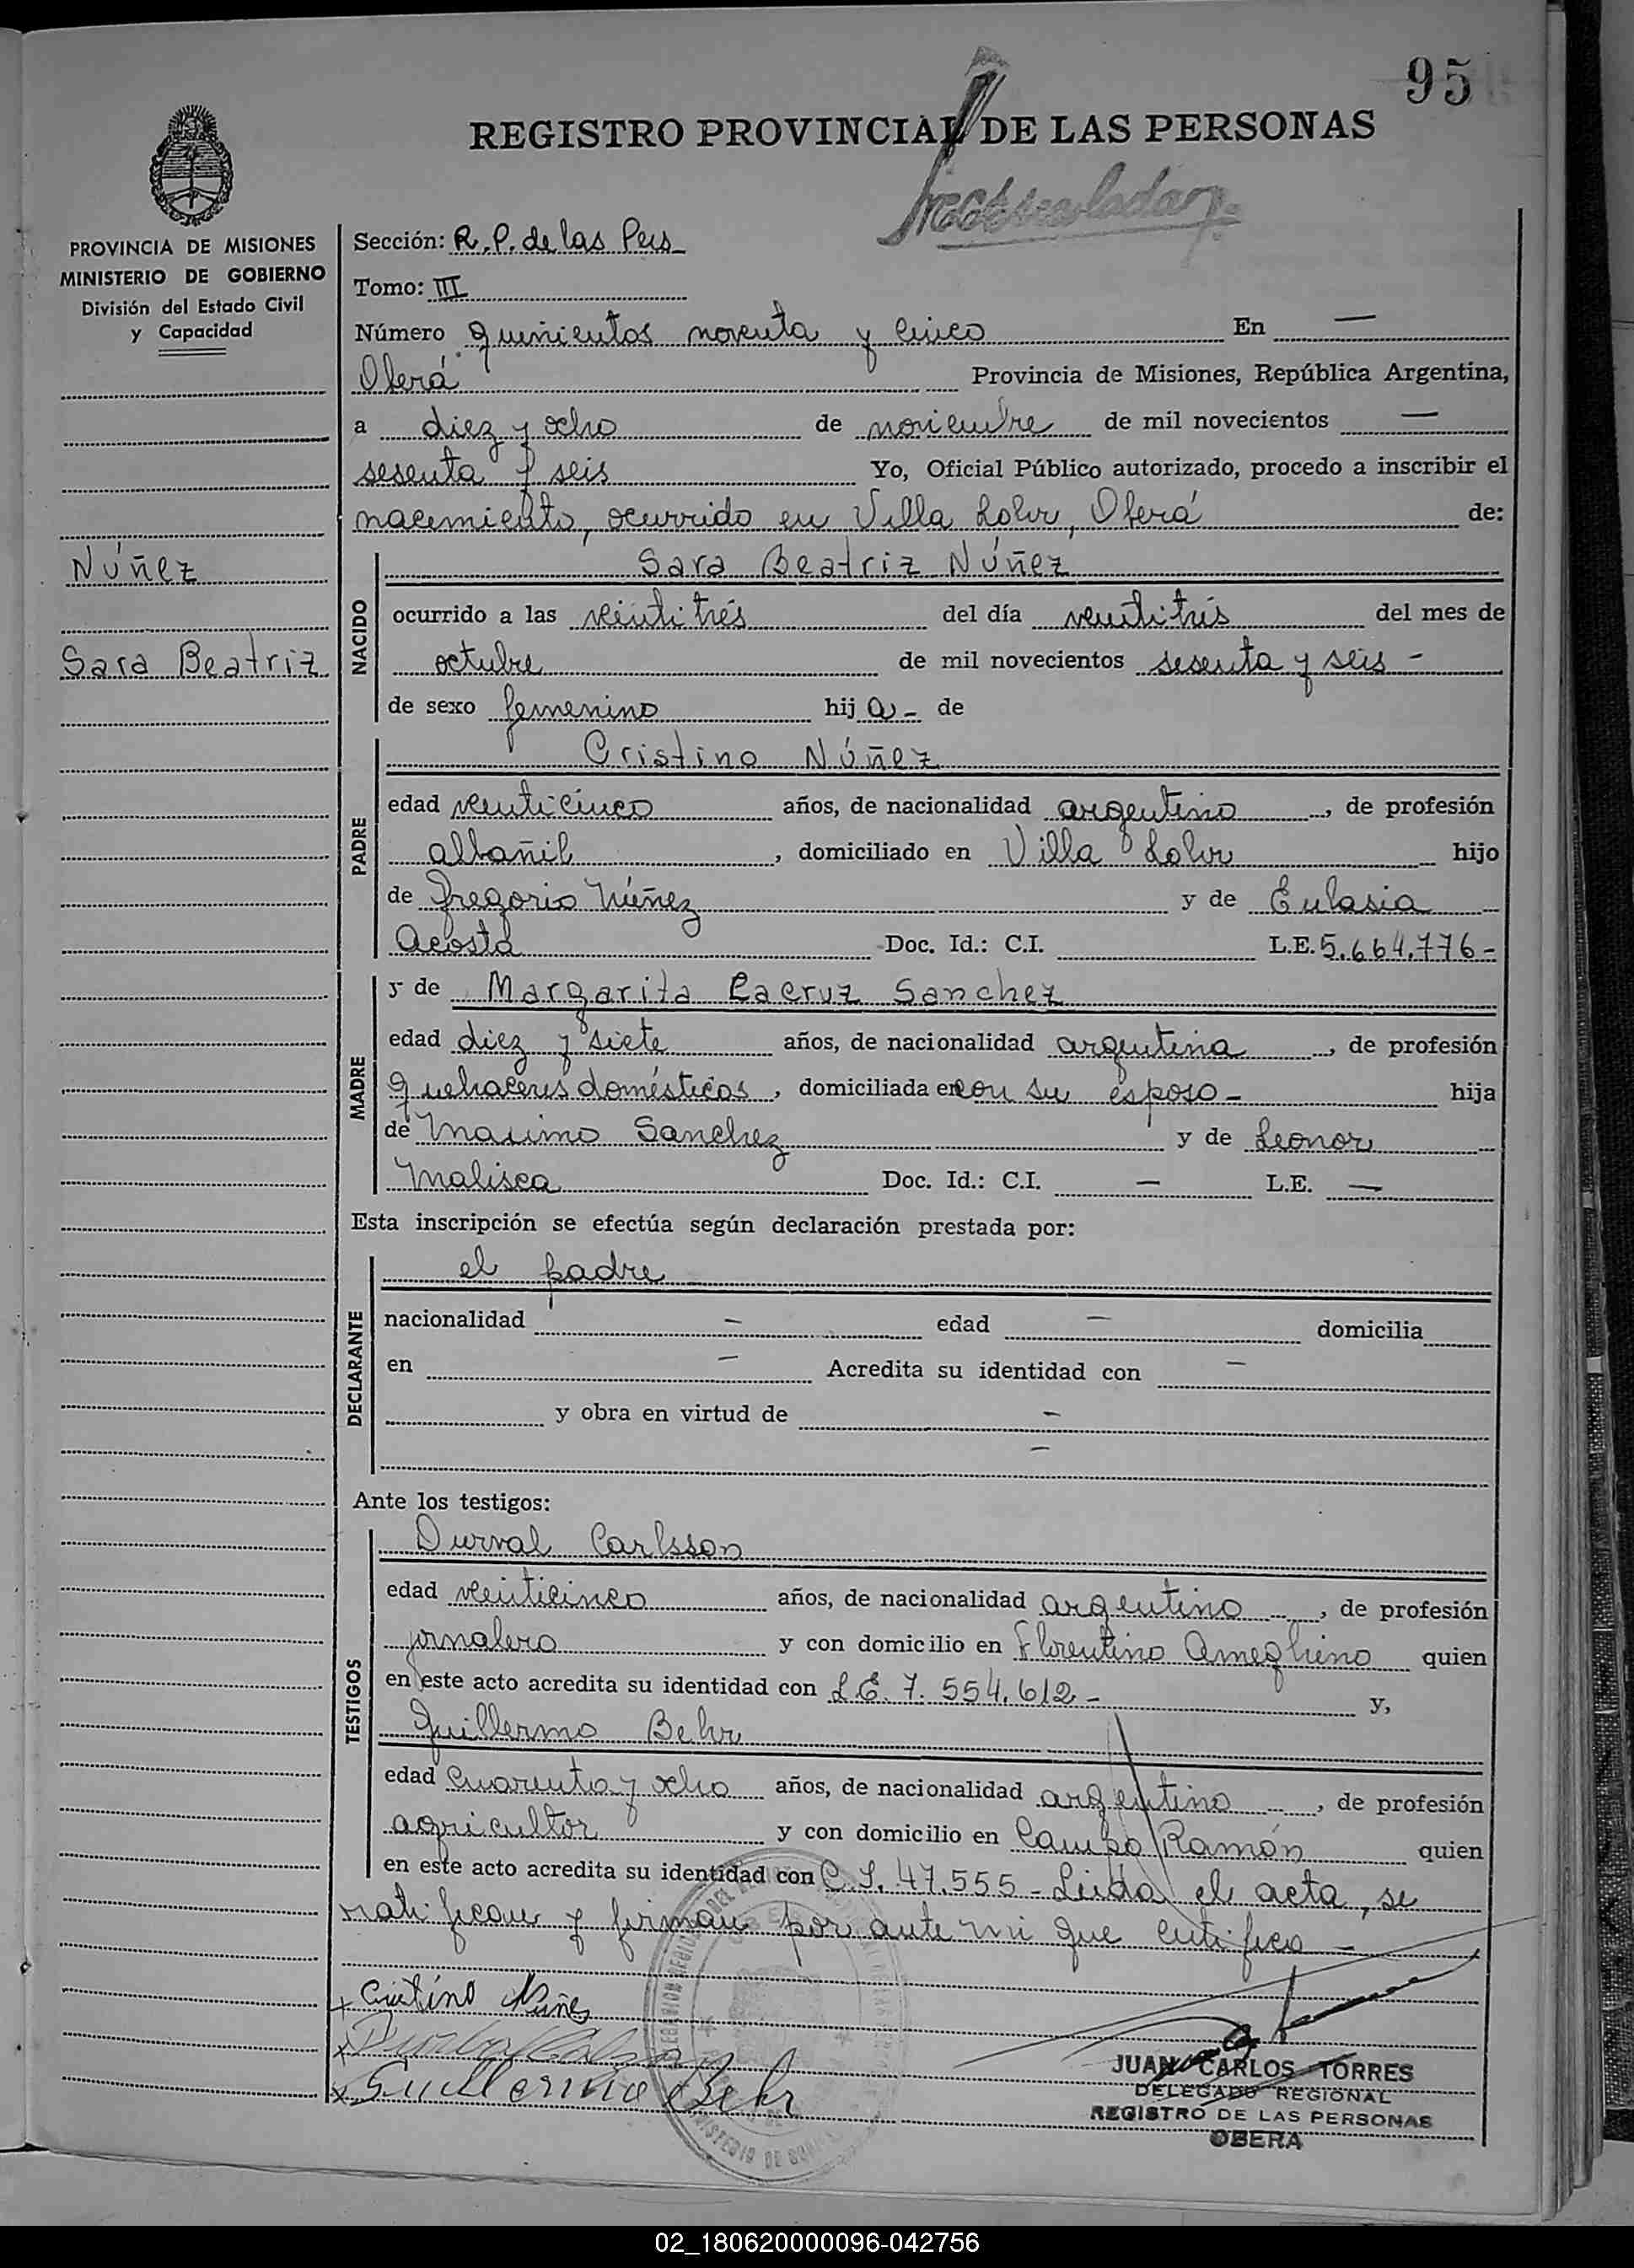 95
REGISTRO PROVINCIAL DE LAS PERSONAS
PROVINCIA DE MISIONES
MINISTERIO DE GOBIERNO
División del Estado Civil
y Capacidad
Núñez
Sara Beatriz
Sección: R. P. de las Pers
Tomo: III
Número quinientos noventa y cinco En —
Oberá Provincia de Misiones, República Argentina,
a diez y ocho de noviembre de mil novecientos —
sesenta y seis Yo, Oficial Público autorizado, procedo a inscribir el
nacimiento, ocurrido en Villa Lohr, Oberá de:
NACIDO
Sara Beatriz Núñez
ocurrido a las veintitrés del día veintitrés del mes de
octubre de mil novecientos sesenta y seis -
de sexo femenino hij a - de
PADRE
Cristino Núñez
edad venticinco años, de nacionalidad argentino, de profesión
albañil, domiciliado en Villa Lohr hijo
de Gregorio Núñez y de Eulasia
Acosta Doc. Id.: C.I. L.E. 5.664.776-
MADRE
y de Margarita Lacruz Sanchez
edad diez y siete años, de nacionalidad argentina, de profesión
quehaceres domésticos, domiciliada en con su esposo - hija
de Maximo Sanchez y de Leonor
Malisca Doc. Id.: C.I. — L.E. —
Esta inscripción se efectúa según declaración prestada por:
DECLARANTE
el padre
nacionalidad — edad — domicilia
en — Acredita su identidad con —
y obra en virtud de —
—
Ante los testigos:
TESTIGOS
Durval Carlsson
edad veinticinco años, de nacionalidad argentino, de profesión
jornalero y con domicilio en Florentino Ameghino quien
en este acto acredita su identidad con L.E. 7.554.612- y,
Guillermo Behr
edad cuarenta y ocho años, de nacionalidad argentino, de profesión
agricultor y con domicilio en Campo Ramón quien
en este acto acredita su identidad con C.I. 47.555- Leida el acta, se
ratifican y firman por ante mi que certifico -
x Cristino Núñes
x
x Guillermo Behr
JUAN CARLOS TORRES
DELEGADO REGIONAL
REGISTRO DE LAS PERSONAS
OBERA
02_180620000096-042756